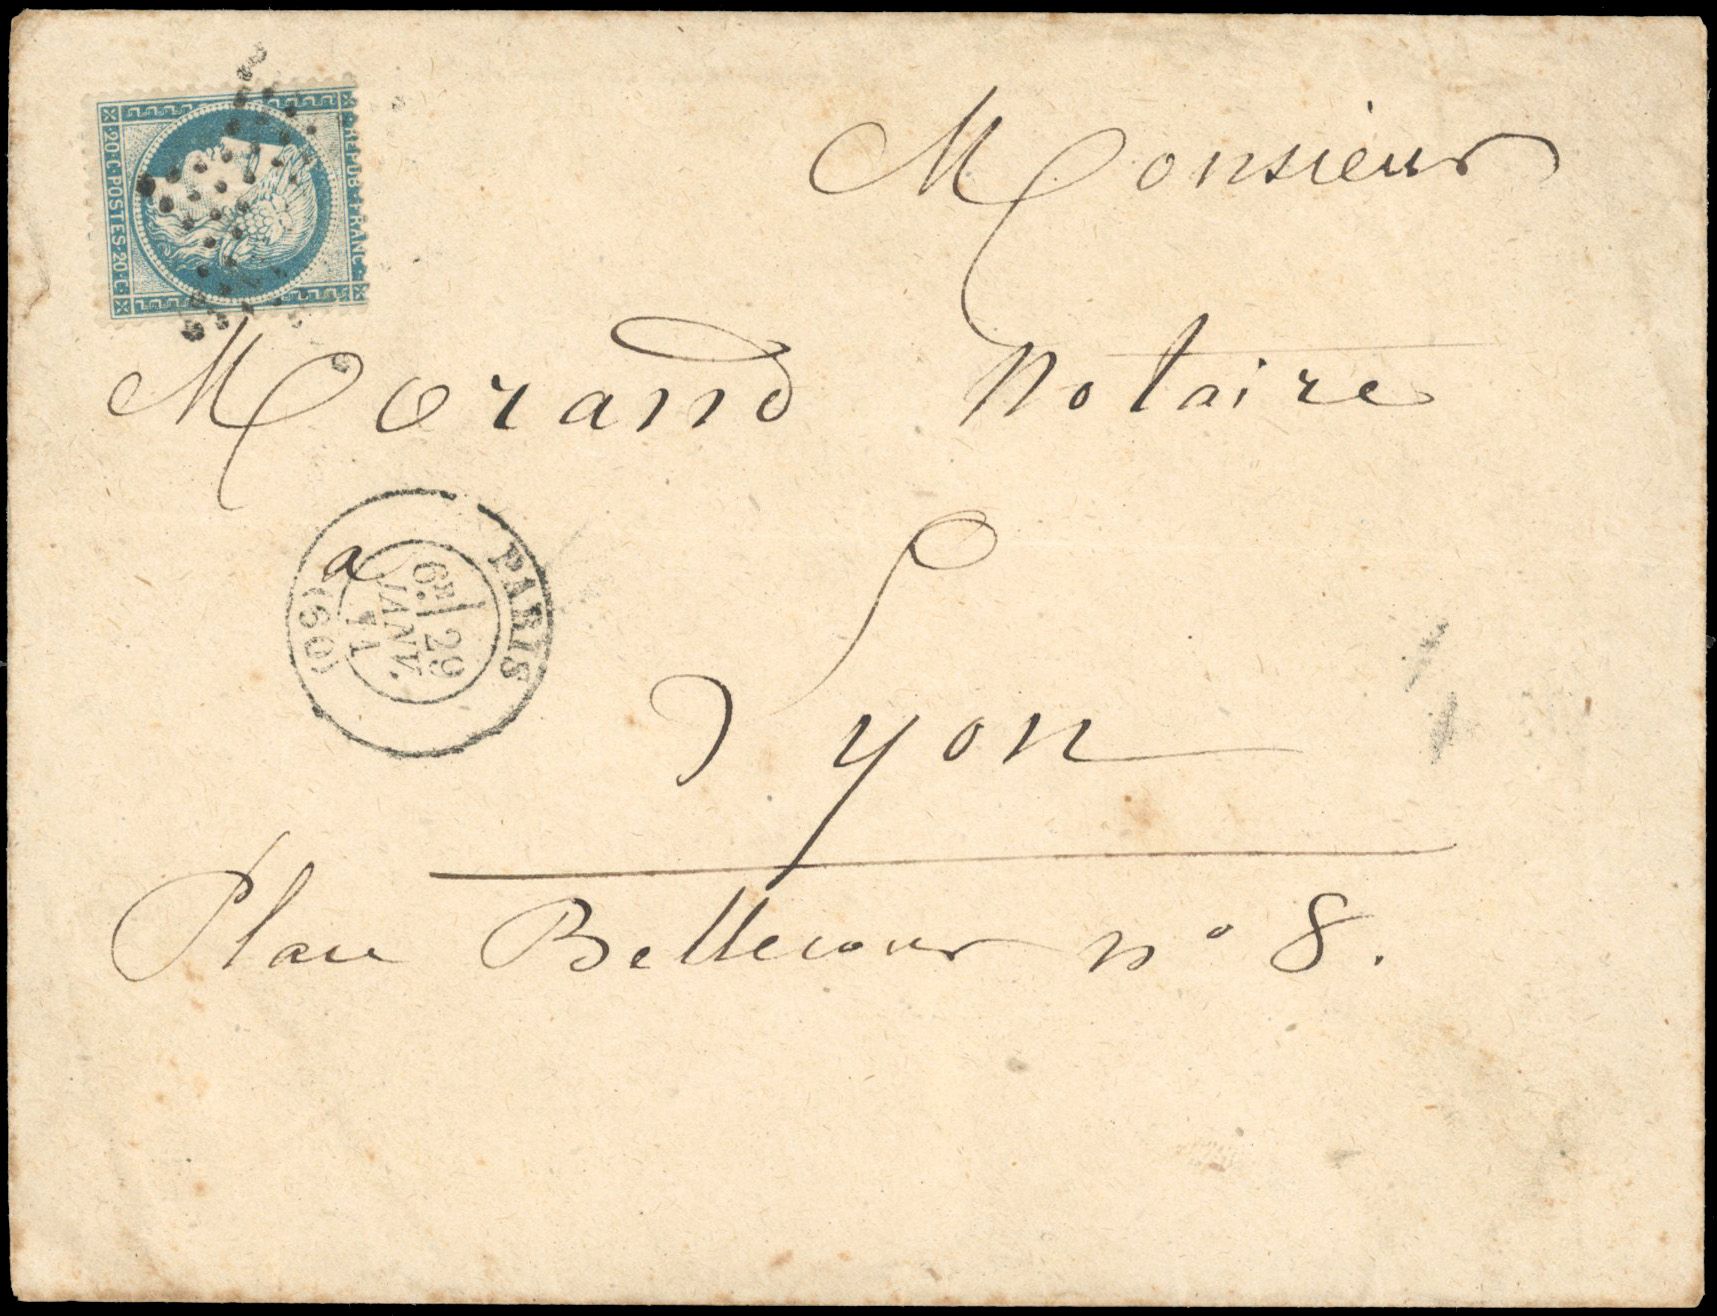 REPUB·FRANC·
20·C·POSTES·20·C
Monsieur
Morand Notaire
a
PARIS
6E/ 29
JANV.
71
(60)
Lyon
Place Bellecour n° 8.